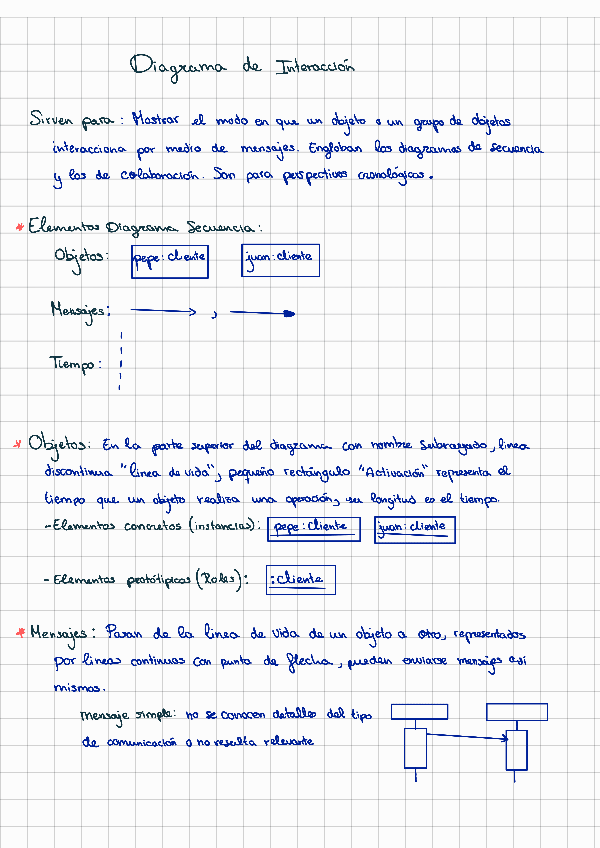 Diagrama de Interacción
Sirven para: Mostrar el modo en que un objeto o un grupo de objetos
interacciona por medio de mensajes. Engloban los diagramas de secuencia
y los de colaboración. Son para perspectivas cronológicas.
* Elementos Diagrama Secuencia:
Objetos: pepe:cliente juan:cliente
Mensajes: ,
Tiempo:
* Objetos: En la parte superior del diagrama con nombre subrayado, linea
discontinua "linea de vida", pequeño rectángulo "Activación" representa el
tiempo que un objeto realiza una operación, su longitud es el tiempo.
-Elementos concretos (instancias): pepe:cliente juan:cliente
-Elementos prototípicos (Roles): :cliente
* Mensajes: Pasan de la linea de vida de un objeto a otro, representados
por lineas continuas con punta de flecha, pueden enviarse mensajes a si
mismos.
mensaje simple: no se conocen detalles del tipo
de comunicación o no resulta relevante